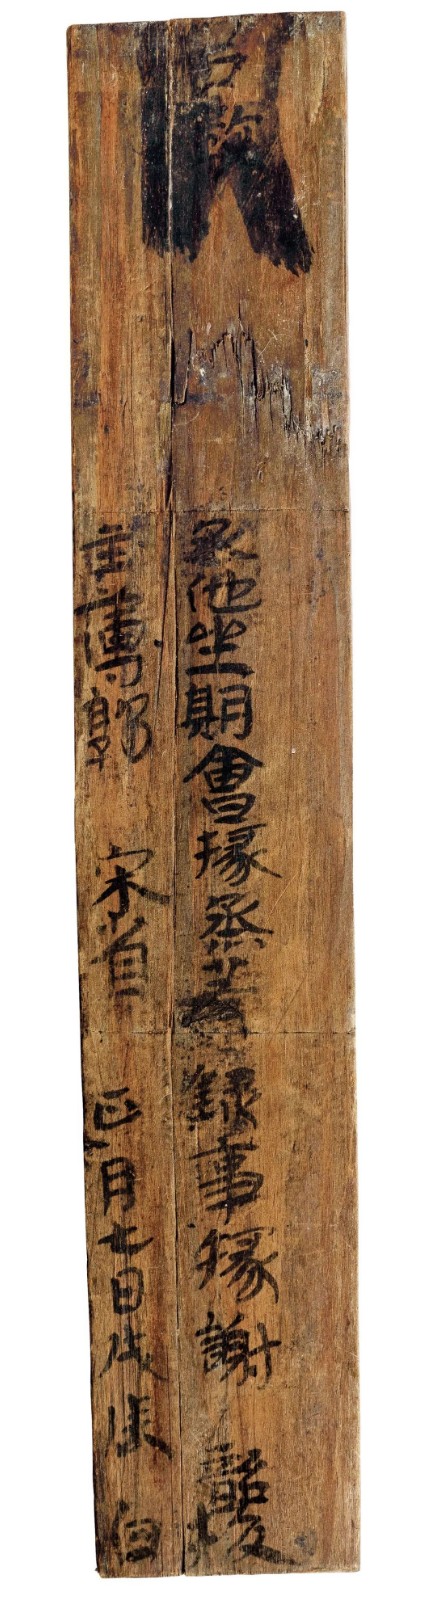 君教
丞他坐期會掾烝若録事掾謝韶校
主簿郭宋省正月七日戊辰白